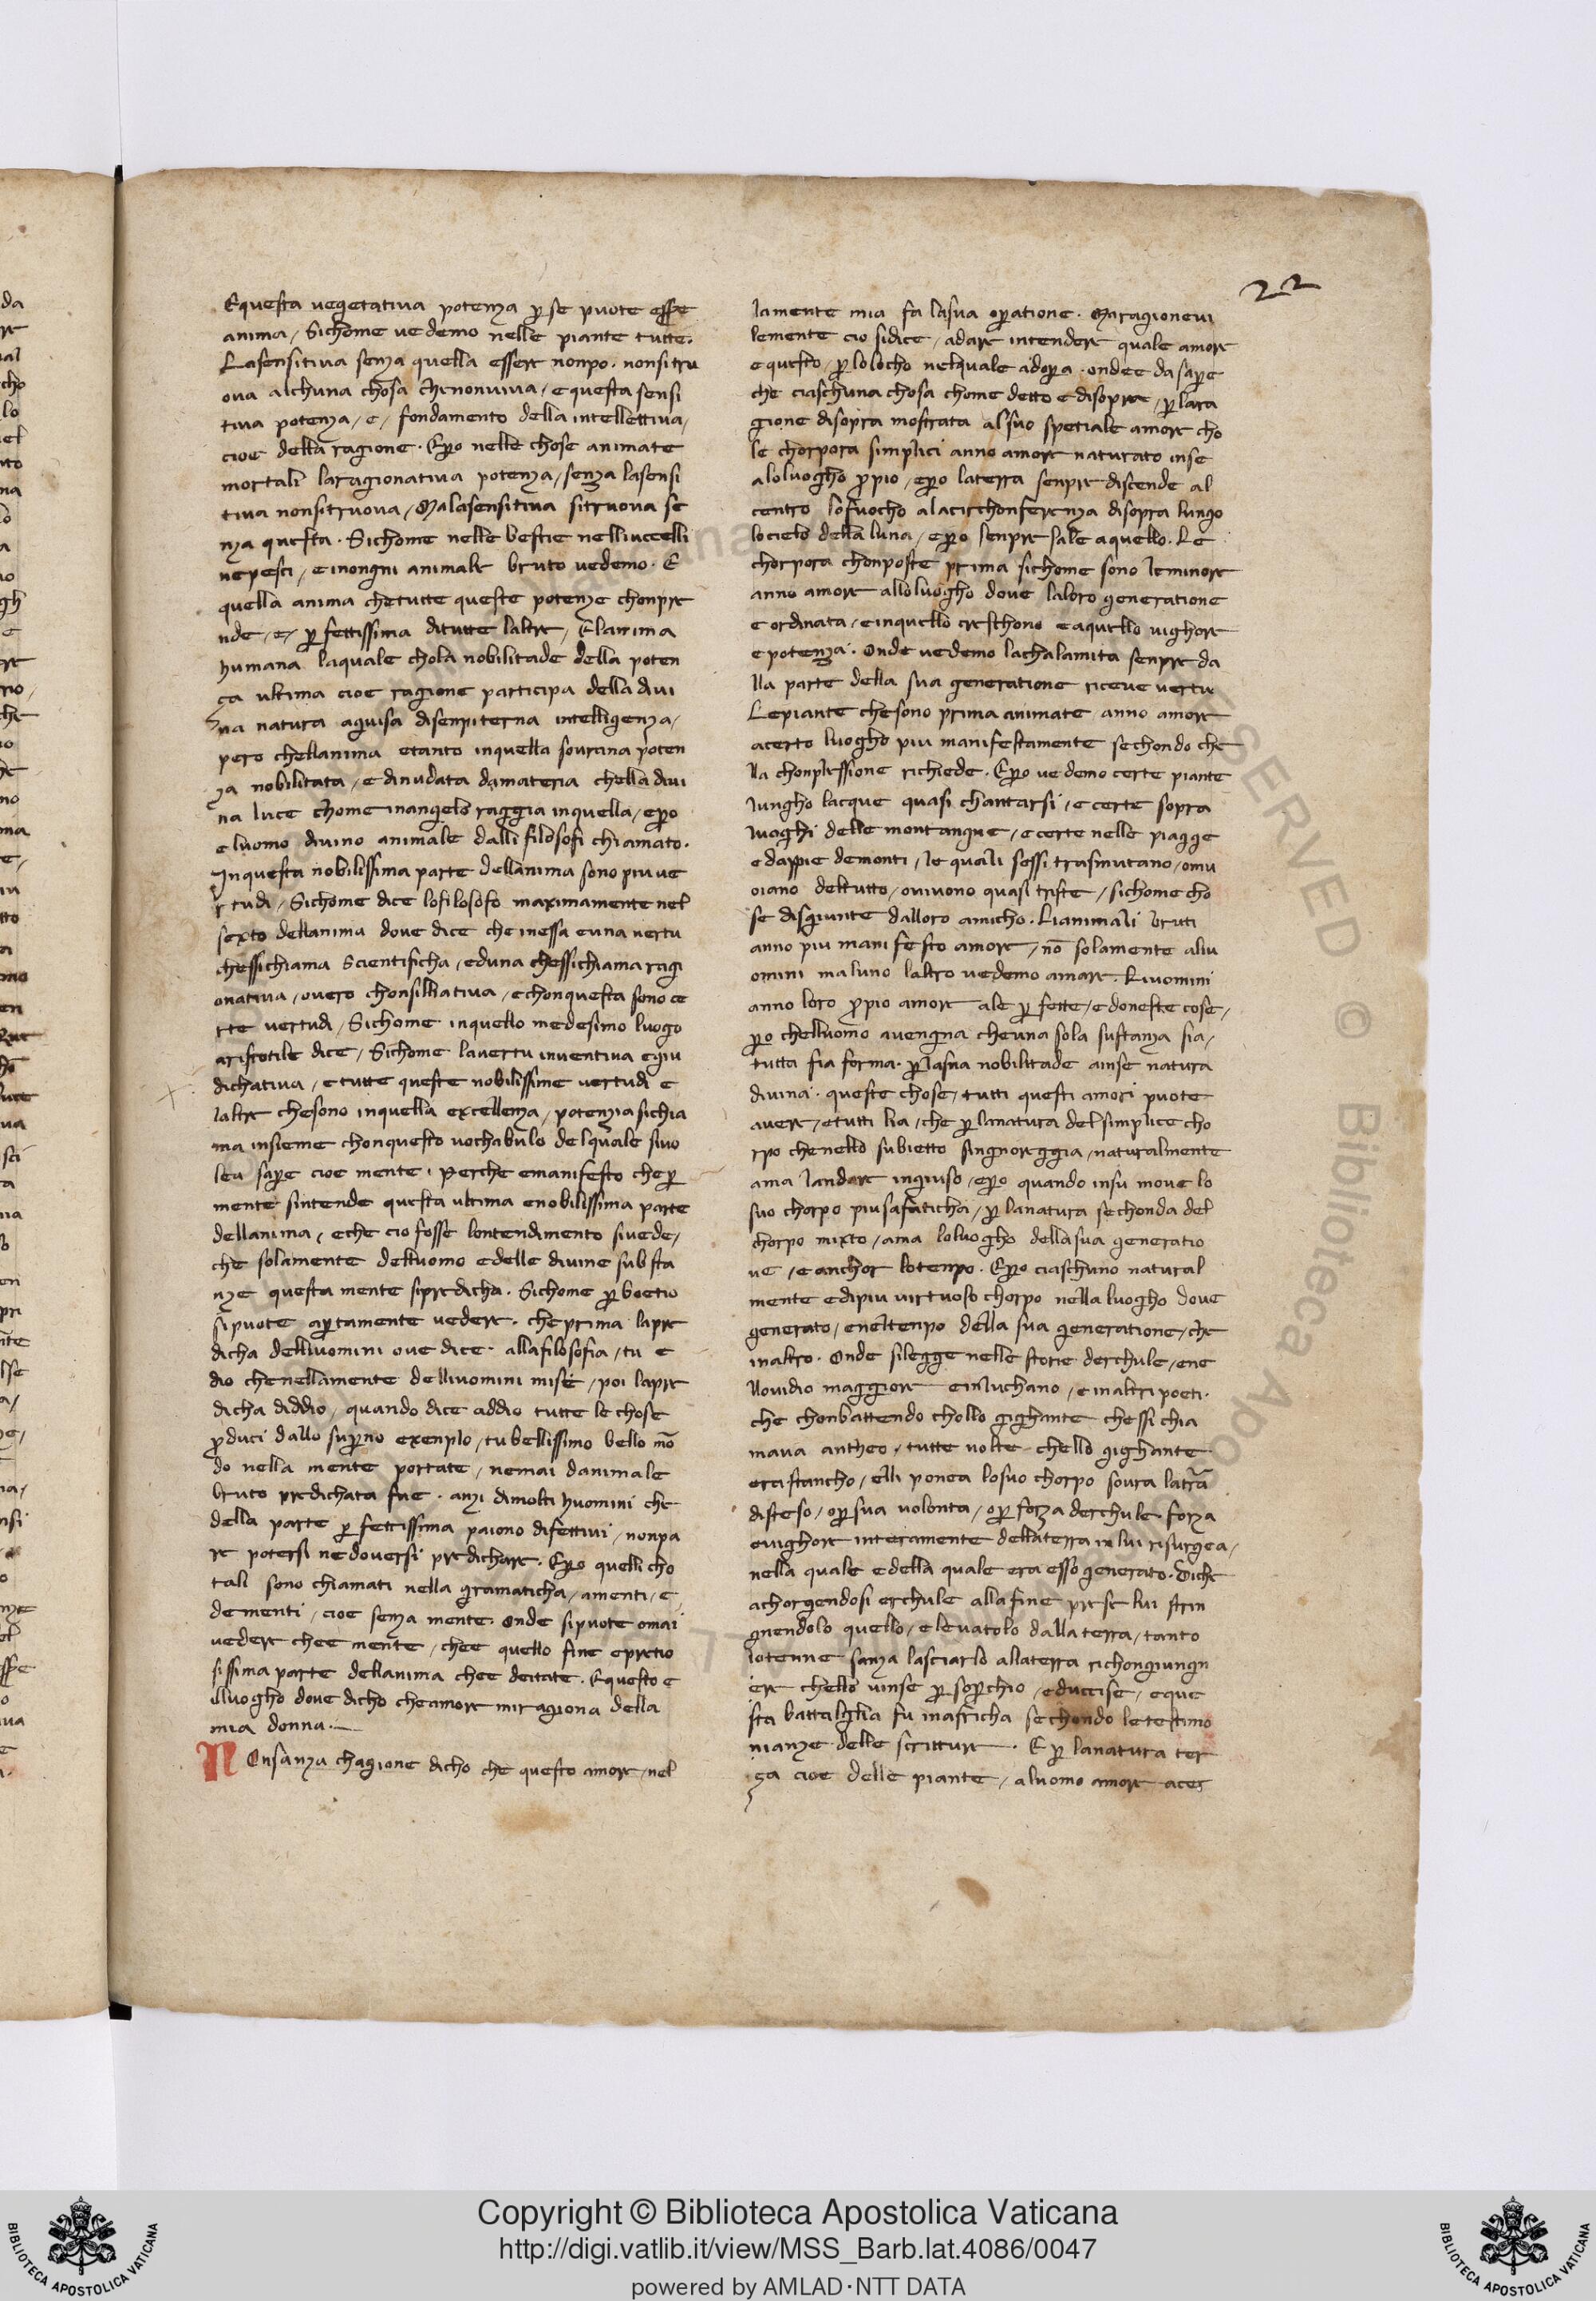 22
Equesta vegetativa potenza p se puote essere
anima / Sichome vedemo nelle piante tutte.
Lasensitiva senza quella essere nonpo. nonsitru
ova alchuna chosa chenonviva / e questa sensi
tiva potenza / e / fondamento della intellettiva /
cioe della ragione. Epo nelle chose animate
mortali laragionativa potenza / senza lasensi
tiva nonsitruova / Malasensitiva sitruova se
nza questa. Sichome nelle bestie nelliuccelli
nepesci / e inongni animale bruto vedemo. E
quella anima chetutte queste potenze chonpre
nde / e / pfettissima ditutte laltre / Elanima
humana laquale chola nobilitade della poten
ça ultima cioe ragione participa della divi
na natura aguisa disenpiterna intelligenza /
pero chellanima etanto inquella sovrana poten
za nobilitata / e dinudata damateria chella divi
na luce chome inangelo raggia inquella / epo
e luomo divino animale dalli filosofi chiamato.
Inquesta nobilissima parte dellanima sono piu ve
rtudi / Sichome dice lofilosofo maximamente nel
sexto dellanima dove dice che inessa euna vertu
chessichiama Scientificha / eduna chessichiama ragi
onativa / overo chonsilliativa / echonquesta sono ce
rte vertudi / Sichome inquello medesimo luogo
aristotile dice / Sichome lavertu inventiva egiu
dichativa / e tutte queste nobilissime vertudi e
laltre chesono inquella excellenza / potenzia sichia
ma insieme chonquesto vochabulo delquale sivo
lea sape cioe mente. Perche emanifesto che p
mente sintende questa ultima enobilissima parte
dellanima / eche cio fosse lontendimento sivede /
che solamente delluomo edelle divine substa
nze questa mente sipredicha. Sichome p boetio
sipuote aptamente vedere. cheprima lapre
dicha delliuomini ove dice. allafilosofia / tu e
dio chenellamente delliuomini mise / poi lapre
dicha diddio / quando dice addio tutte le chose
pduci dallo supno exenplo / tu bellissimo bello mo
do nella mente portate / nemai danimale
bruto predichata fue. anzi dimolti huomini che
della parte pfettissima paiono difettivi / nonpa
re potersi nedoversi predichare. Epo quelli cho
tali sono chiamati nella gramaticha / amenti / e
dementi / cioe senza mente. Onde sipuote omai
vedere chee mente / chee quello fine epretio
sissima parte dellanima chee deitate. Equesto e
illuogho dove dicho cheamore miragiona della
mia donna.
NOnsanza chagione dicho che questo amore / nel
lamente mia fa lasua opatione. Maragionevi
lemente cio sidice / adare intendere quale amore
e questo / p lolocho nelquale adopa. ondee dasape
che ciaschuna chosa chome detto edisopra / p lara
gione disopra mostrata alsuo spetiale amore cho
le chorpora simplici anno amore naturato inse
aloluogho ppio / epo laterra senpre discende al
centro lofuocho alacirchonferenza disopra lungo
locielo della luna / epo senpre sale aquello. Le
chorpora chonposte prima sichome sono leminore
anno amore alloluogho dove laloro generatione
e ordinata / einquello creschono eaquello vighore
epotenza. Onde vedemo lachalamita senpre da
lla parte della sua generatione riceve vertu
Lepiante chesono prima animate anno amore
acerto luogho piu manifestamente sechondo che
lla chonplessione richiede. Epo vedemo certe piante
lungho lacque quasi chantarsi / e certe sopra
luoghi delle montangne / ecerte nelle piagge
edappie demonti / le quali sessi trasmutano / omu
oiano deltutto / ovivono quasi triste / sichome cho
se disgiunte dalloro amicho. Lianimali bruti
anno piu manifesto amore / no solamente aliu
omini maluno laltro vedemo amare. Liuomini
anno loro ppio amore ale pfette / edoneste cose /
po chelluomo avengna cheuna sola sustanza sia /
tutta sia forma. p lasua nobilitade ainse natura
divina. queste chose / tutti questi amori puote
avere / etutti lia / che p lanatura delsimplice cho
rpo chenello subietto singnoreggia / naturalmente
ama landare ingiuso / epo quando insu move lo
suo chorpo piusafaticha / p lanatura sechonda del
chorpo mixto / ama loluogho dellasua generatio
ne / e anchor lotenpo. Epo ciaschuno natural
mente edipiu virtuoso chorpo nella luogho dove
generato / eneltenpo della sua generatione / che
inaltro. Onde silegge nelle storie derchule / ene
llovidio maggiore einluchano / e inaltri poeti.
che chonbattendo chollo gighante chessichia
mava antheo / tutte volte chello gighante
erastancho / elli ponea losuo chorpo sovra latra
disteso / op sua volonta / op forza derchule forza
evighore interamente dellaterra inlui risurgea /
nella quale edella quale era esso generato. Diche
achorgendosi erchule allafine prese lui strin
gnendolo quello / elevatolo dallaterra / tanto
lotenne sanza lasciarlo allaterra richongiungn
ere chello vinse p sopchio / educcise / eque
sta battalglia fu inafricha sechondo letestimo
nianze delle scritture. E p lanatura ter
ça cioe delle piante / aluomo amore acer
Copyright © Biblioteca Apostolica Vaticana
http://digi.vatlib.it/view/MSS_Barb.lat.4086/0047
powered by AMLAD·NTT DATA
BIBLIOTECA APOSTOLICA VATICANA
BIBLIOTECA APOSTOLICA VATICANA